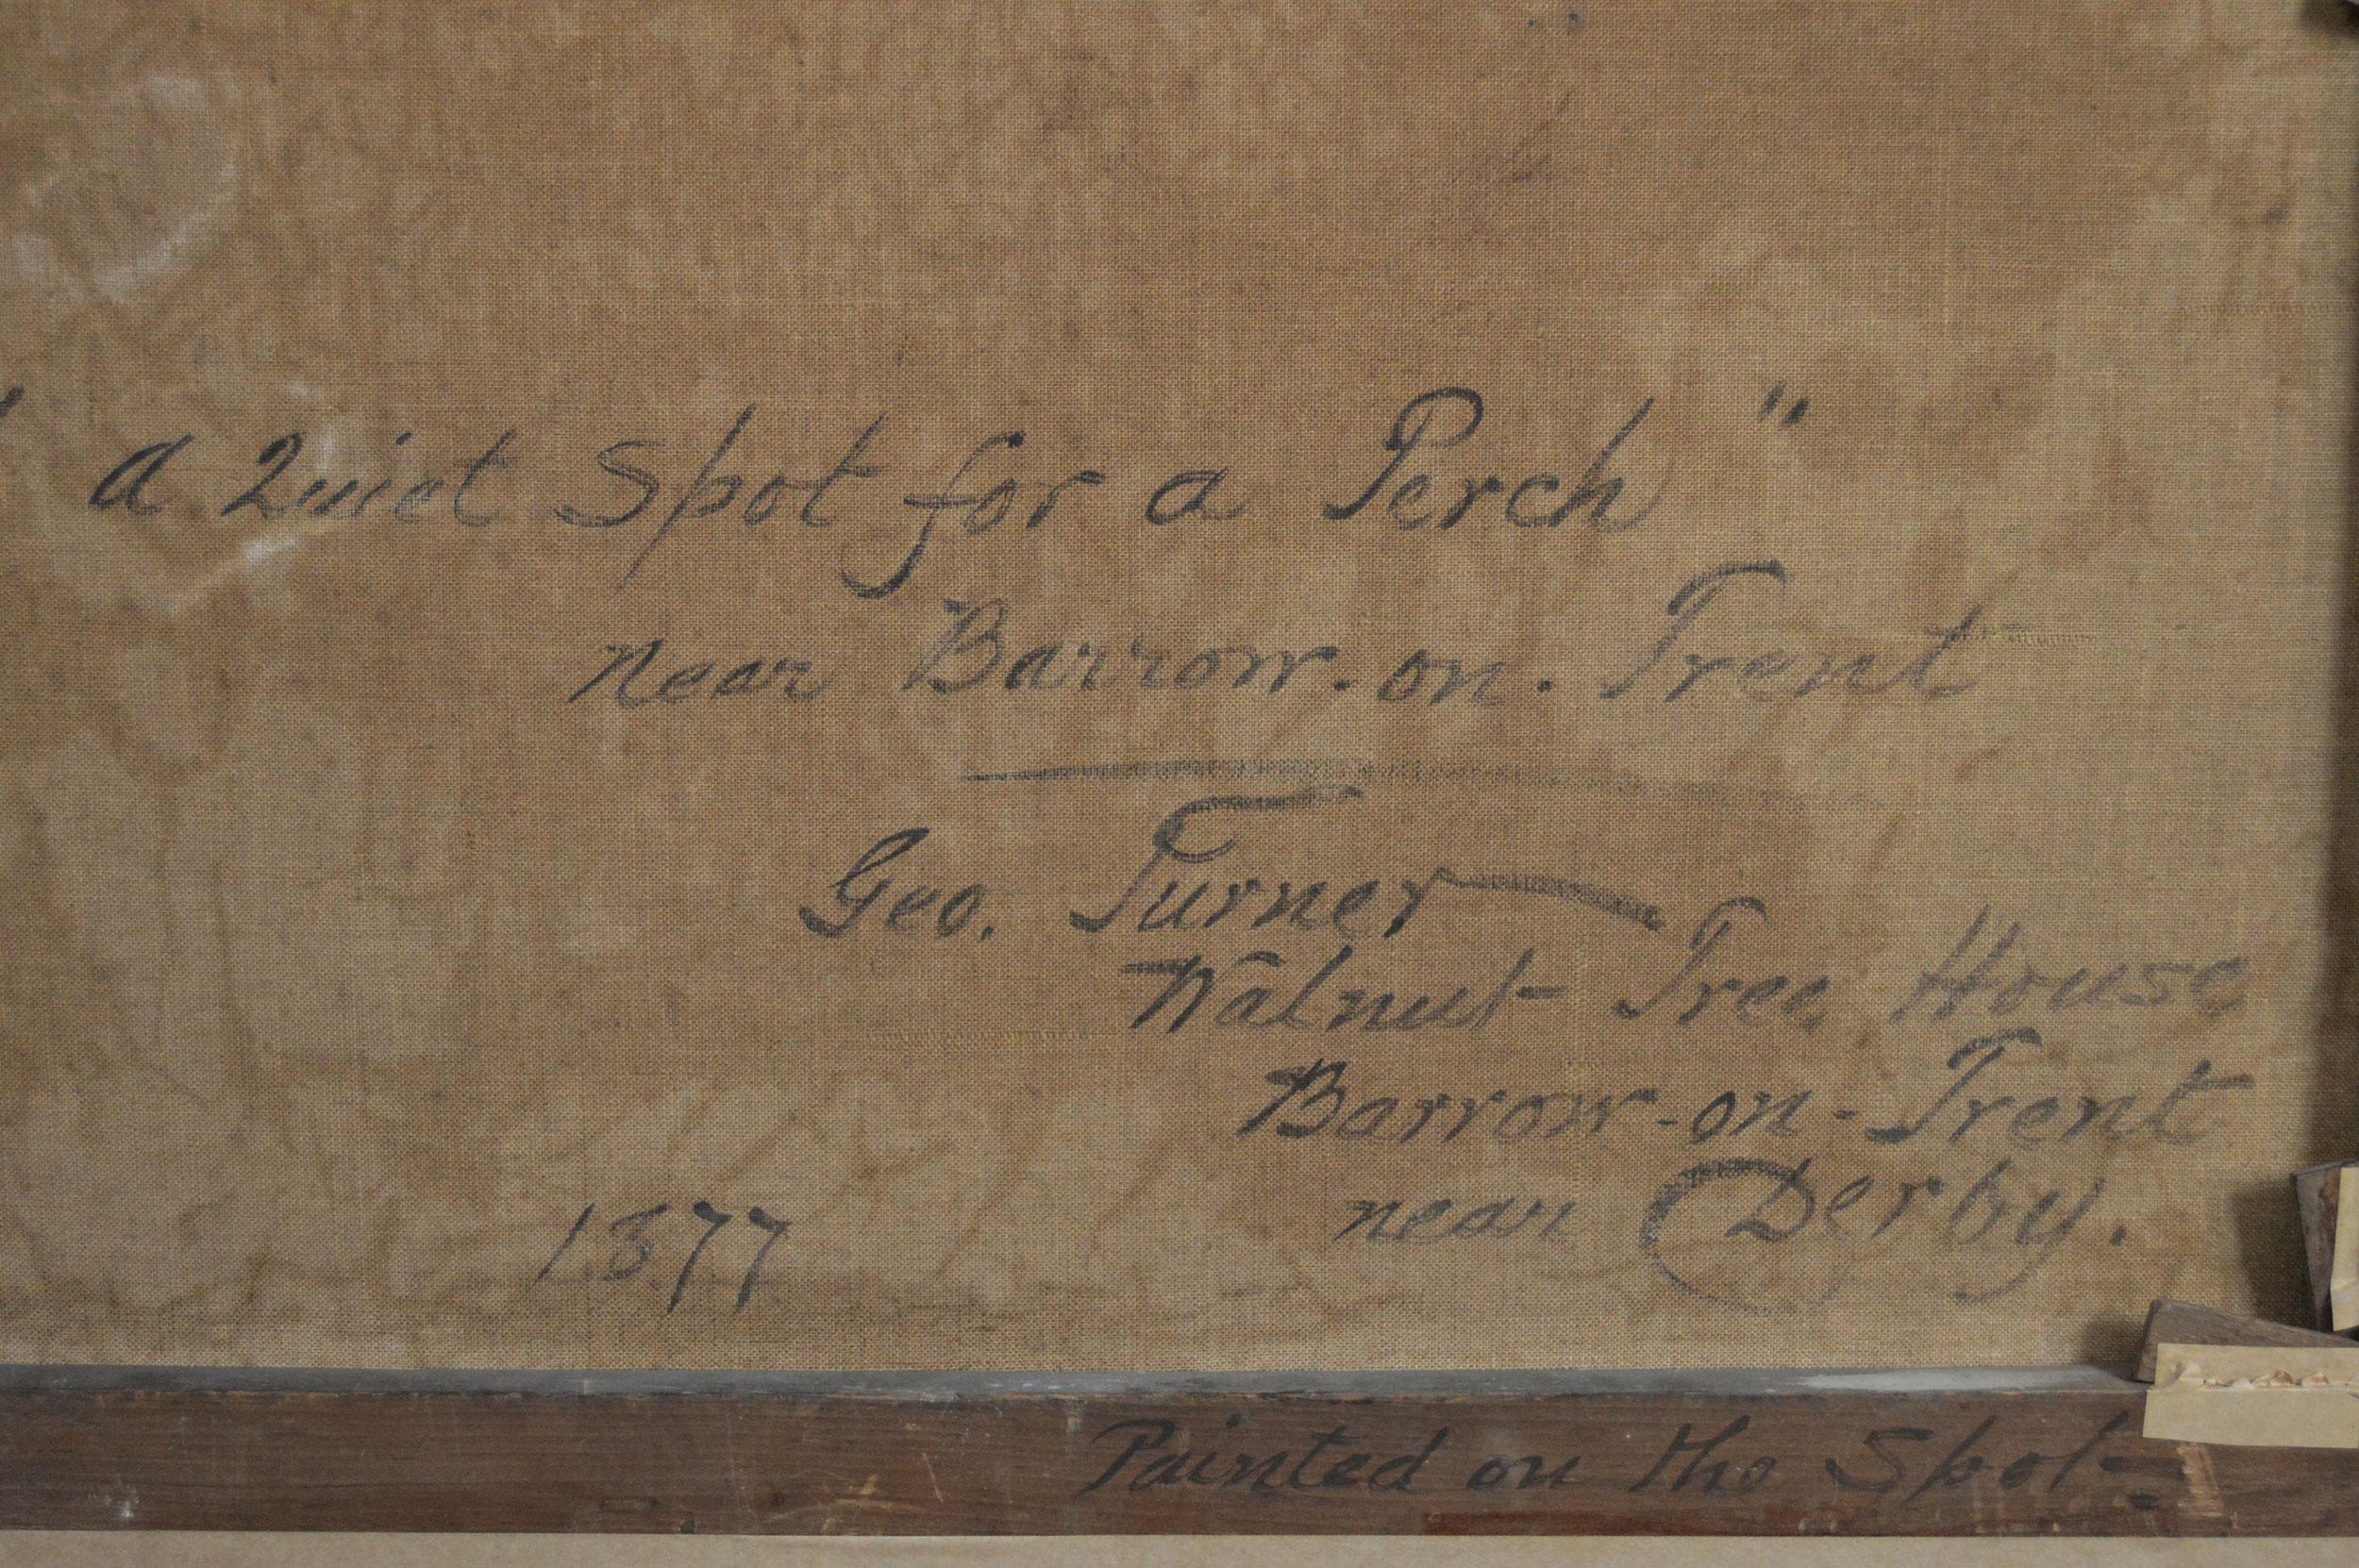 " A Quiet Spot for a Perch "
near Barrow-on-Trent
Geo. Turner
Walnut Tree House
Barrow-on-Trent
near Derby.
1877
Painted on the Spot